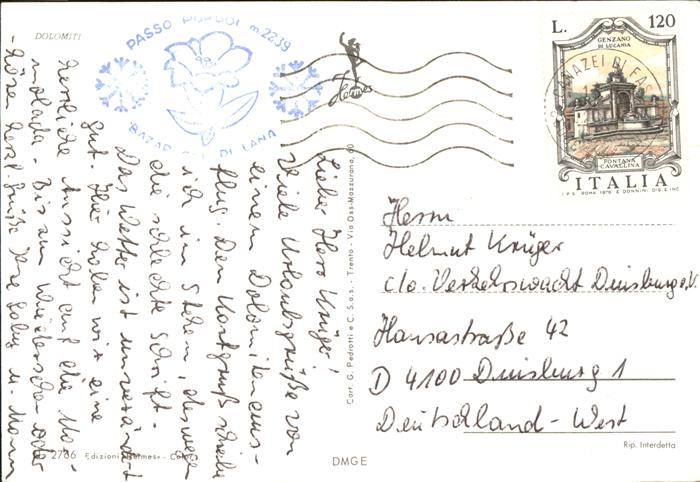 DOLOMITI
PASSO PORDOI m. 2239
BAZAR DI LANA
Hermes
L. 120
GENZANO
DI LUCANIA
CANAZEI DI FAS
FONTANA
CAVALLINA
ITALIA
I.P.S. ROMA 1976 E. DONNINI DIS. E INC.
Lieber Herr Krüger!
Viele Urlaubsgrüße von
einem Dolomitenaus-
flug. Den Kartgruß schreibe
ich im Stehen, deswegen
die schlechte Schrift.
Das Wetter ist unverändert
gut. Hier haben wir eine
herrliche Aussicht auf die Ma-
molada. Bis zum Wiedersehen oder
-hören herzl. Grüße Ihre Gaby u. Mann
Cart. G. Pedrotti e C. S.a.s. - Trento - Via Oss-Mazzurana, 60
Herrn
Helmut Krüger
c/o. Verkehrswacht Duisburg e.V.
Hansastraße 42
D 4100 Duisburg 1
Deutschland - West
2786 Edizioni «Hermes» - Col
DMGE
Rip. Interdetta